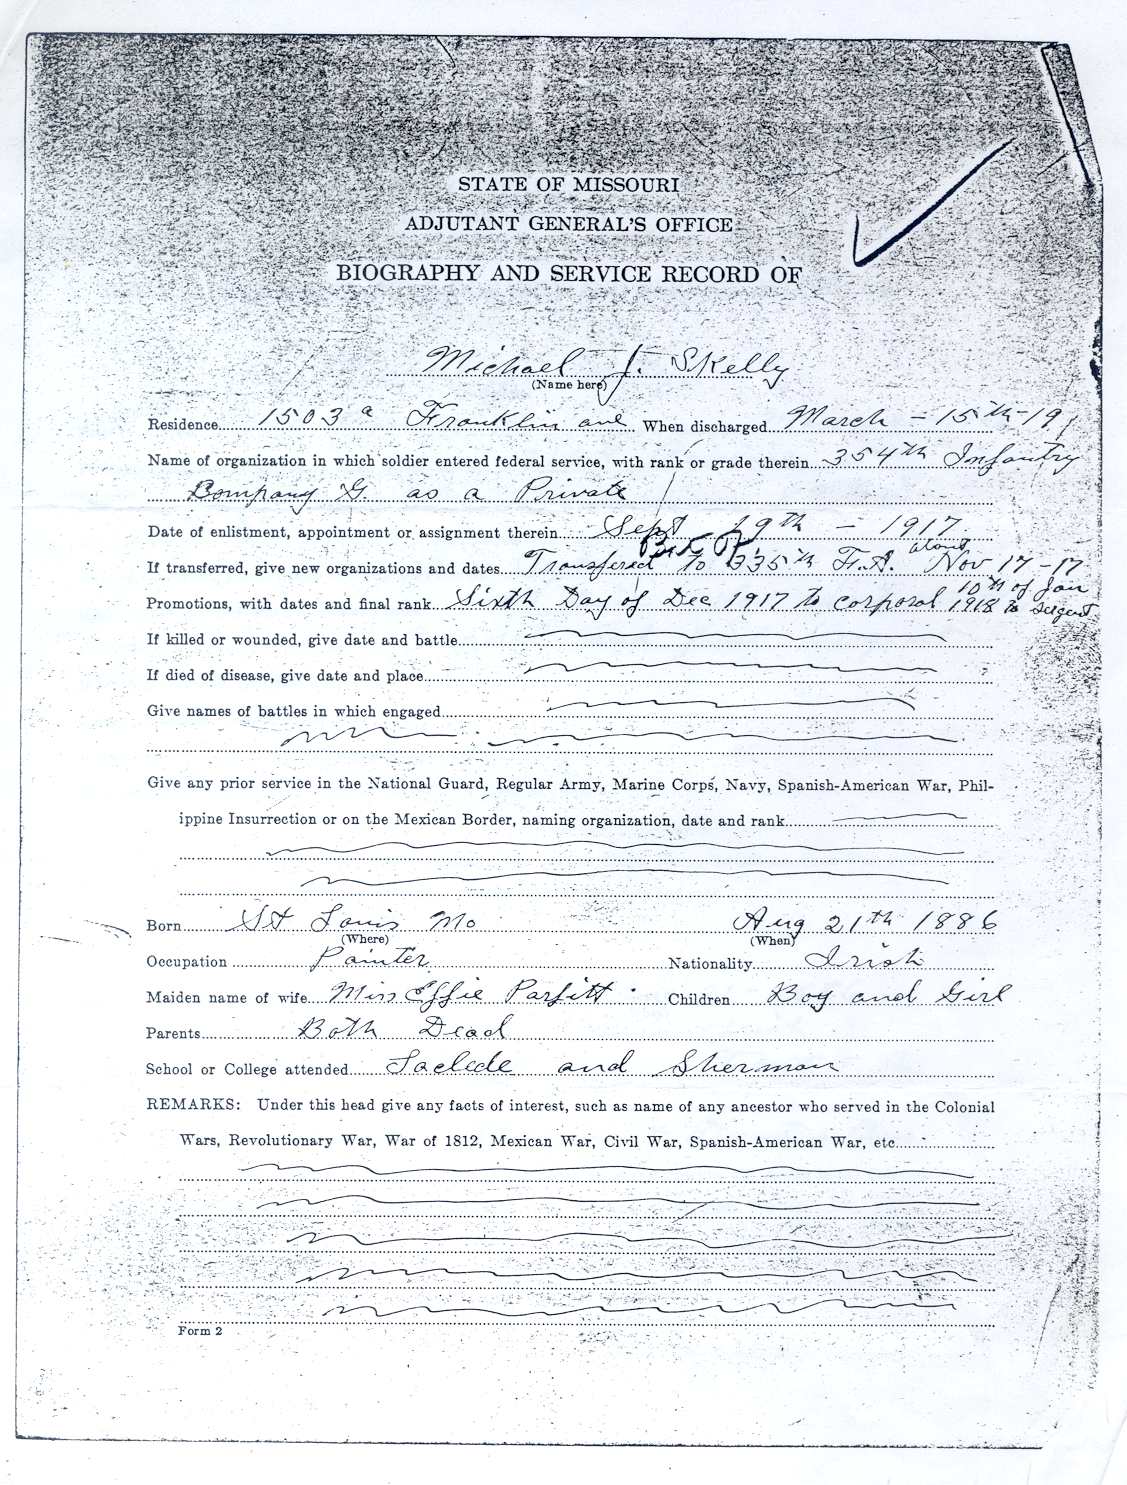 STATE OF MISSOURI
ADJUTANT GENERAL'S OFFICE
BIOGRAPHY AND SERVICE RECORD OF
Michael J. Skelly
(Name here)
Residence 1503 a Franklin ave When discharged March - 15th - 19
Name of organization in which soldier entered federal service, with rank or grade therein 354th Infantry
Company G. as a Private
Date of enlistment, appointment or assignment therein Sept 19th - 1917
If transferred, give new organizations and dates Transferred to 335th F.A. about Nov 17-17
Promotions, with dates and final rank Sixth Day of Dec 1917 to corporal 10th of Jan 1918 to Sergent
If killed or wounded, give date and battle
If died of disease, give date and place
Give names of battles in which engaged
Give any prior service in the National Guard, Regular Army, Marine Corps, Navy, Spanish-American War, Phil-
ippine Insurrection or on the Mexican Border, naming organization, date and rank
Born St Louis Mo Aug 21th 1886
(Where) (When)
Occupation Painter Nationality Irish
Maiden name of wife Miss Effie Parfitt. Children Boy and Girl
Parents Both Dead
School or College attended Laclede and Sherman
REMARKS: Under this head give any facts of interest, such as name of any ancestor who served in the Colonial
Wars, Revolutionary War, War of 1812, Mexican War, Civil War, Spanish-American War, etc
Form 2